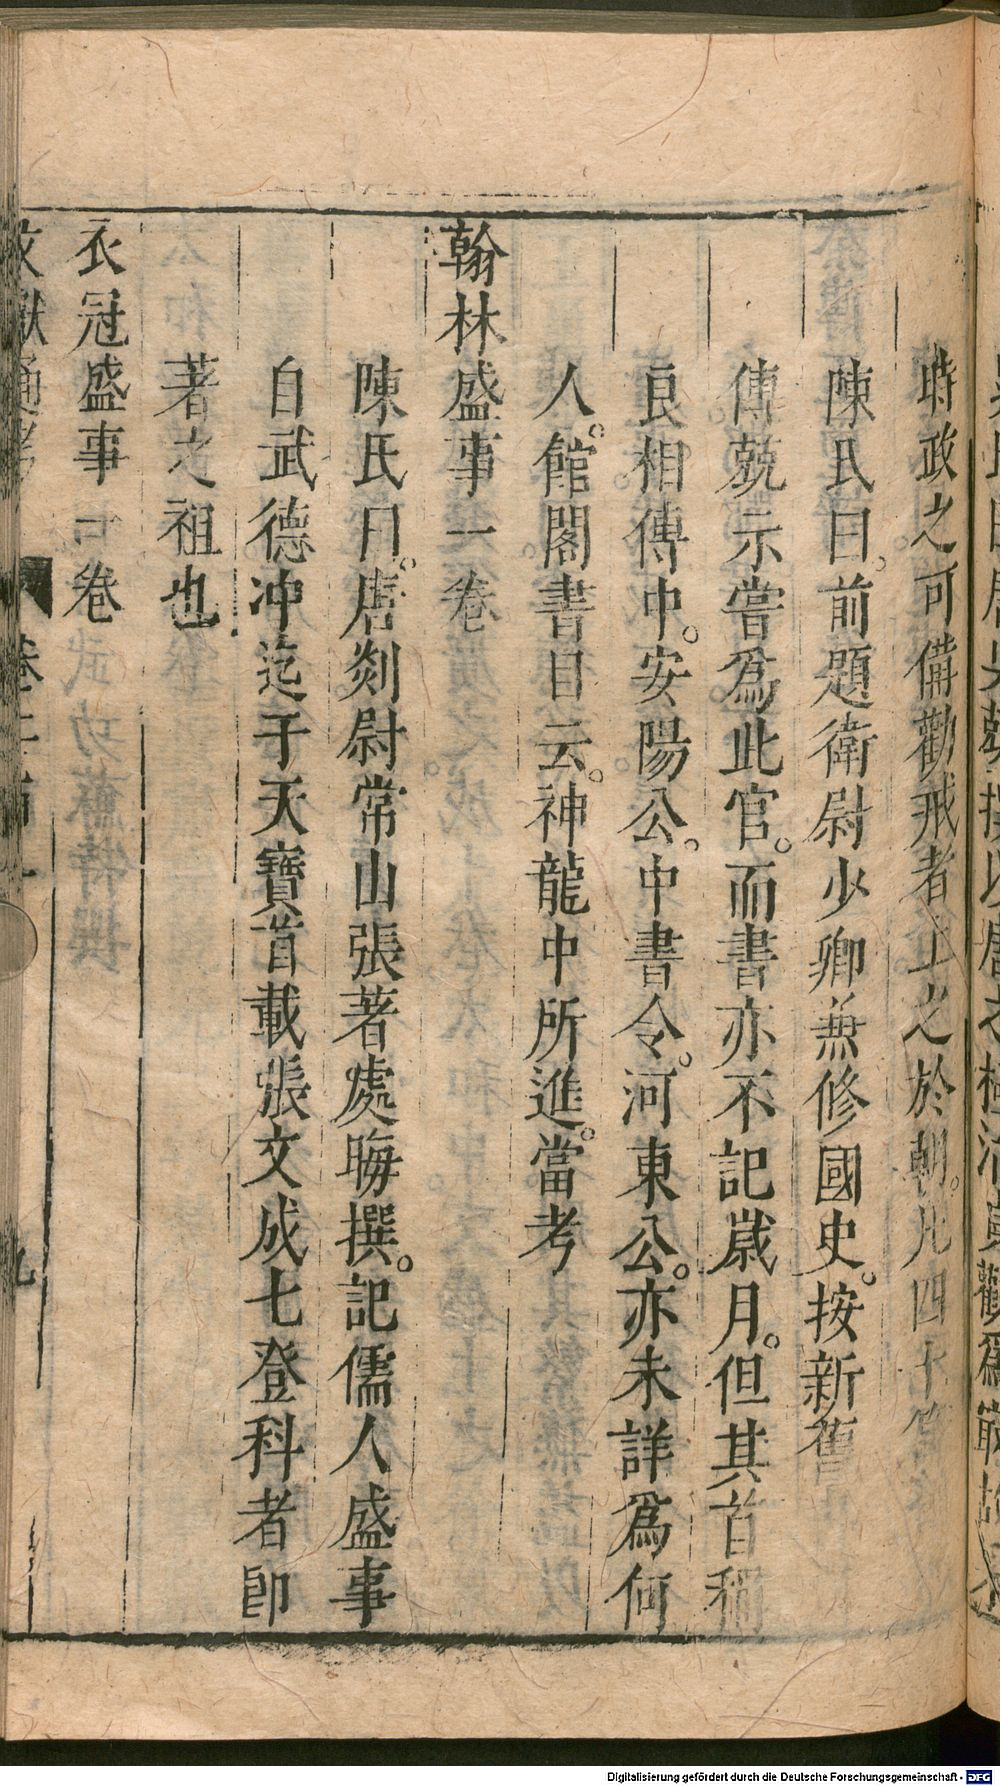 時政之可備勸戒者上之於朝。凡四十
陳氏曰。前題衛尉少卿兼修國史。按新舊
傳兢示嘗爲此官。而書亦不記歲月。但其首稱
良相傳中。安陽公。中書令。河東公。亦未詳爲何
人。館閣書目云。神龍中所進。當考
翰林盛事一卷
陳氏曰。唐剡尉常山張著處晦撰。記儒人盛事
自武德冲迄于天寶首載張文成七登科者卽
著之祖也
衣冠盛事一卷
文獻通考
Digitalisierung gefördert durch die Deutsche Forschungsgemeinschaft - DFG